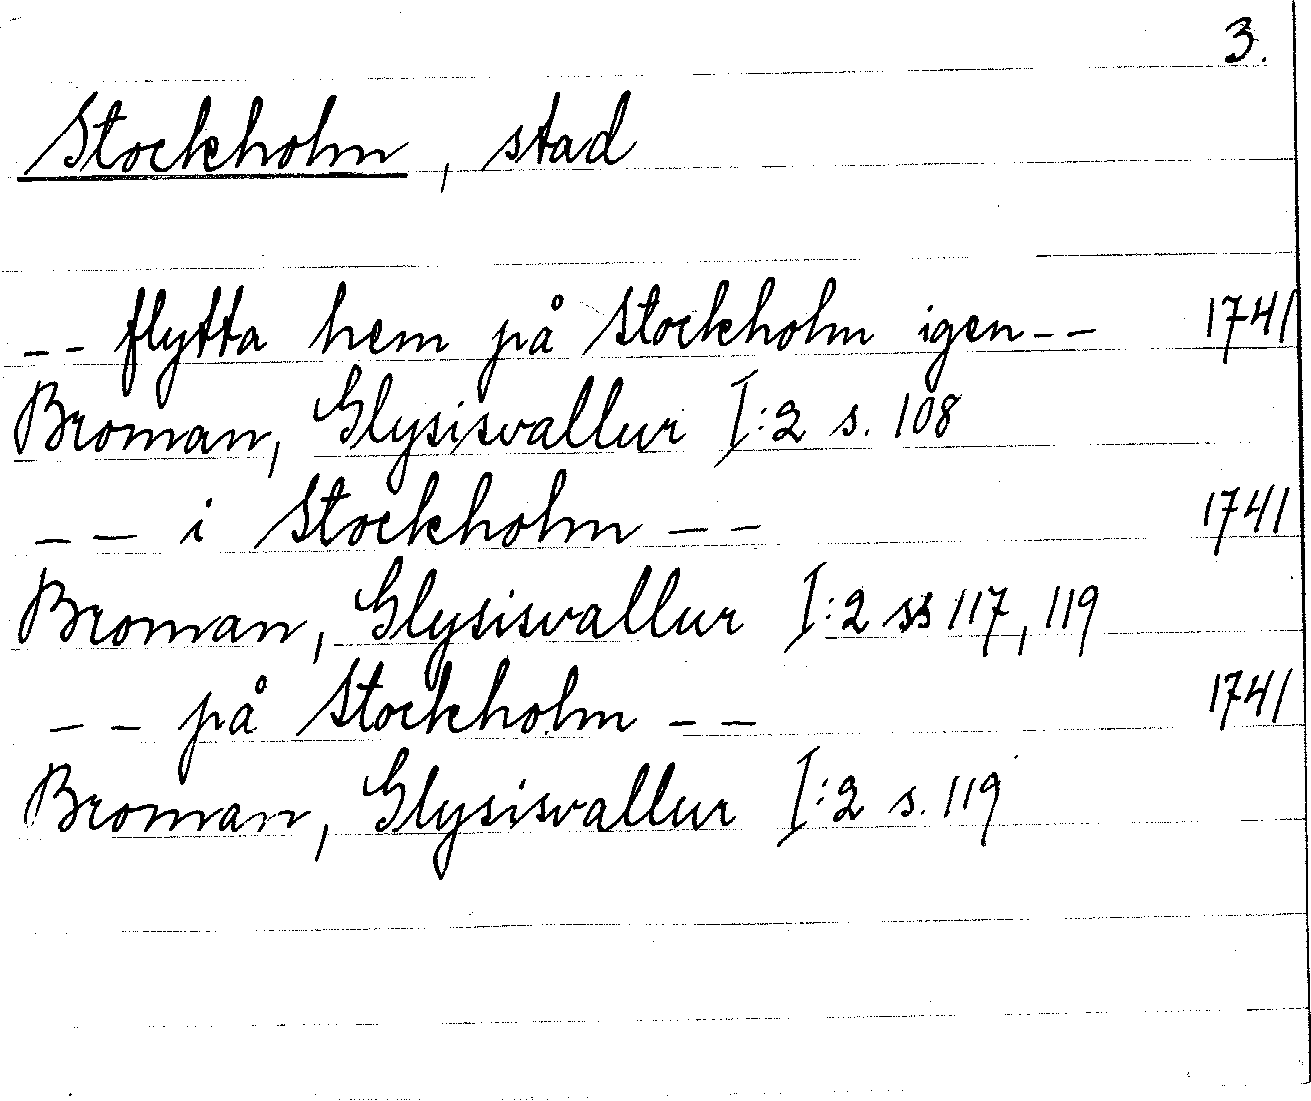 3.
Stockholm, stad
-- flytta hem på Stockholm igen -- 1741
Broman, Glysisvallur I:2 s. 108
-- i Stockholm -- 1741
Broman, Glysisvallur I:2 ss 117, 119
-- på Stockholm -- 1741
Broman, Glysisvallur I:2 s. 119